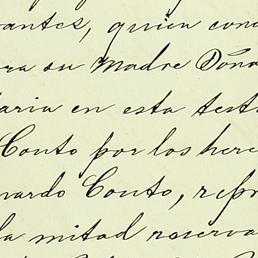 antes, quien con
ra su Madre Doña
aria en esta test
Couto por los here
nardo Couto, repr
la mitad reserva